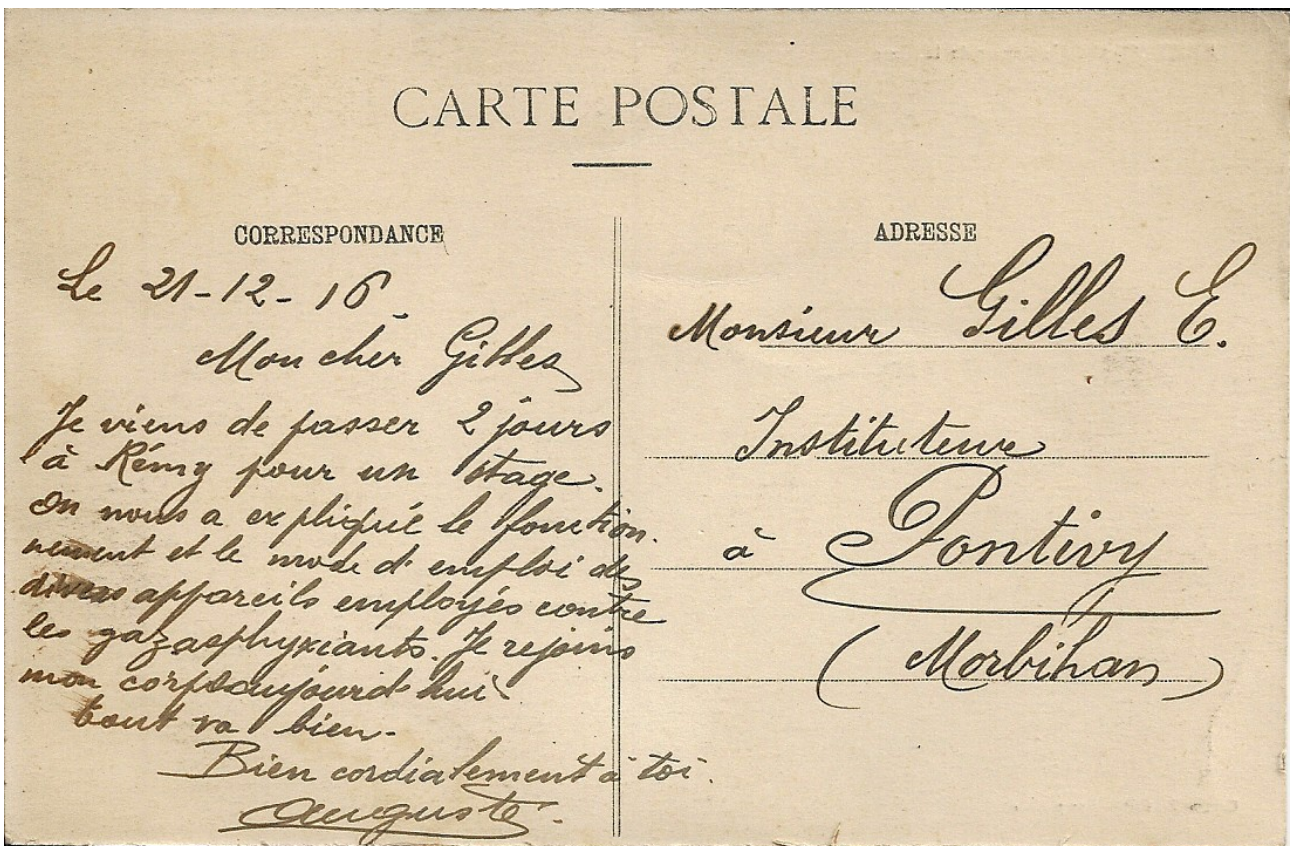 CARTE POSTALE
CORRESPONDANCE
Le 21-12-16
Mon cher Gilles
Je viens de passer 2 jours
à Rémy pour un stage.
On nous a expliqué le fonction-
nement et le mode d'emploi des
divers appareils employés contre
les gaz asphyxiants. Je rejoins
mon corps aujourd'hui
tout va bien.
Bien cordialement à toi.
Auguste.
ADRESSE
Monsieur Gilles E.
Instituteur
à Pontivy
(Morbihan)